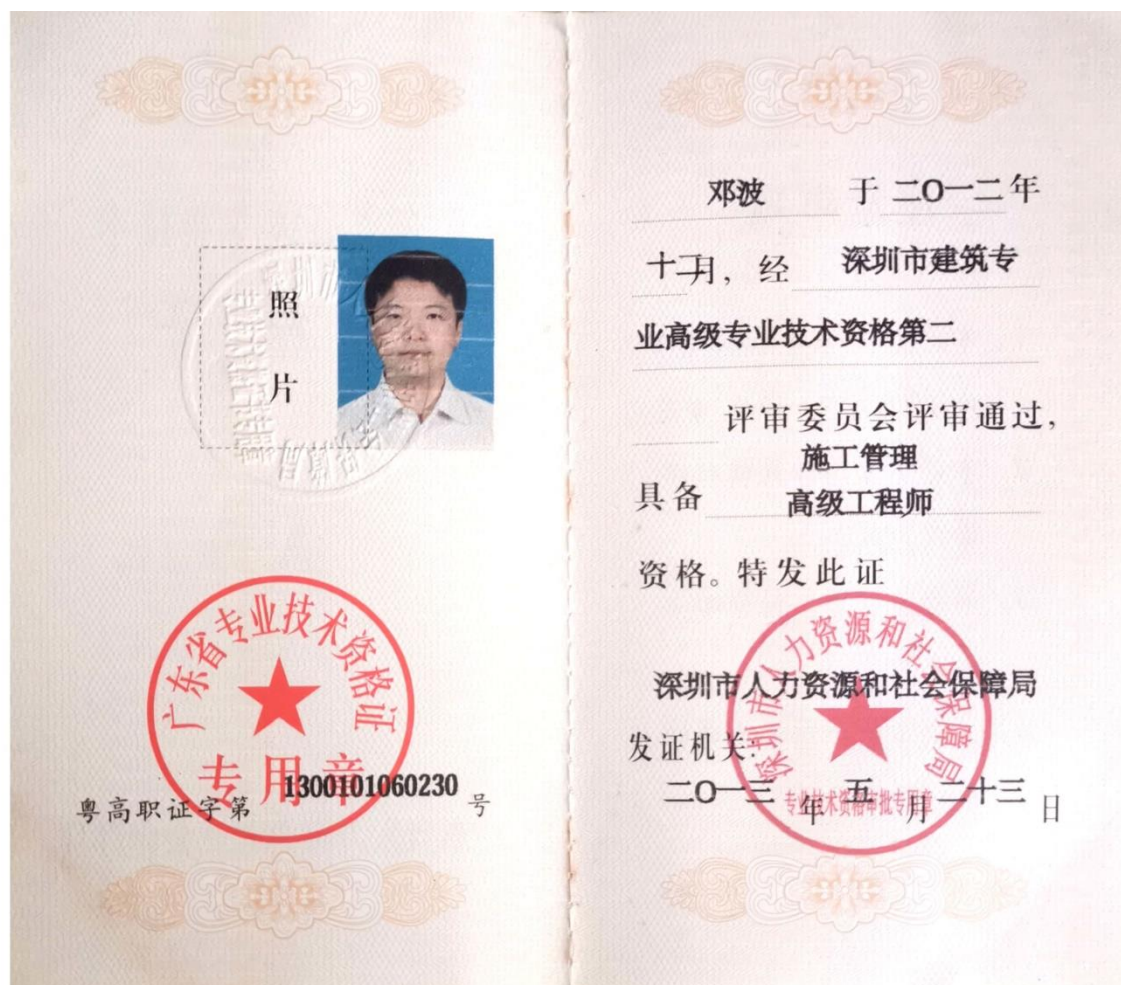 照
片
广东省专业技术资格证
专用章
粤高职证字第 1300101060230 号
邓波 于 二〇一二 年
十二月，经 深圳市建筑专
业高级专业技术资格第二
评审委员会评审通过，
施工管理
具备 高级工程师
资格。特发此证
深圳市人力资源和社会保障局
深圳市人力资源和社会保障局
发证机关：
二〇一三 年 五 月 二十三 日
专业技术资格审批专用章